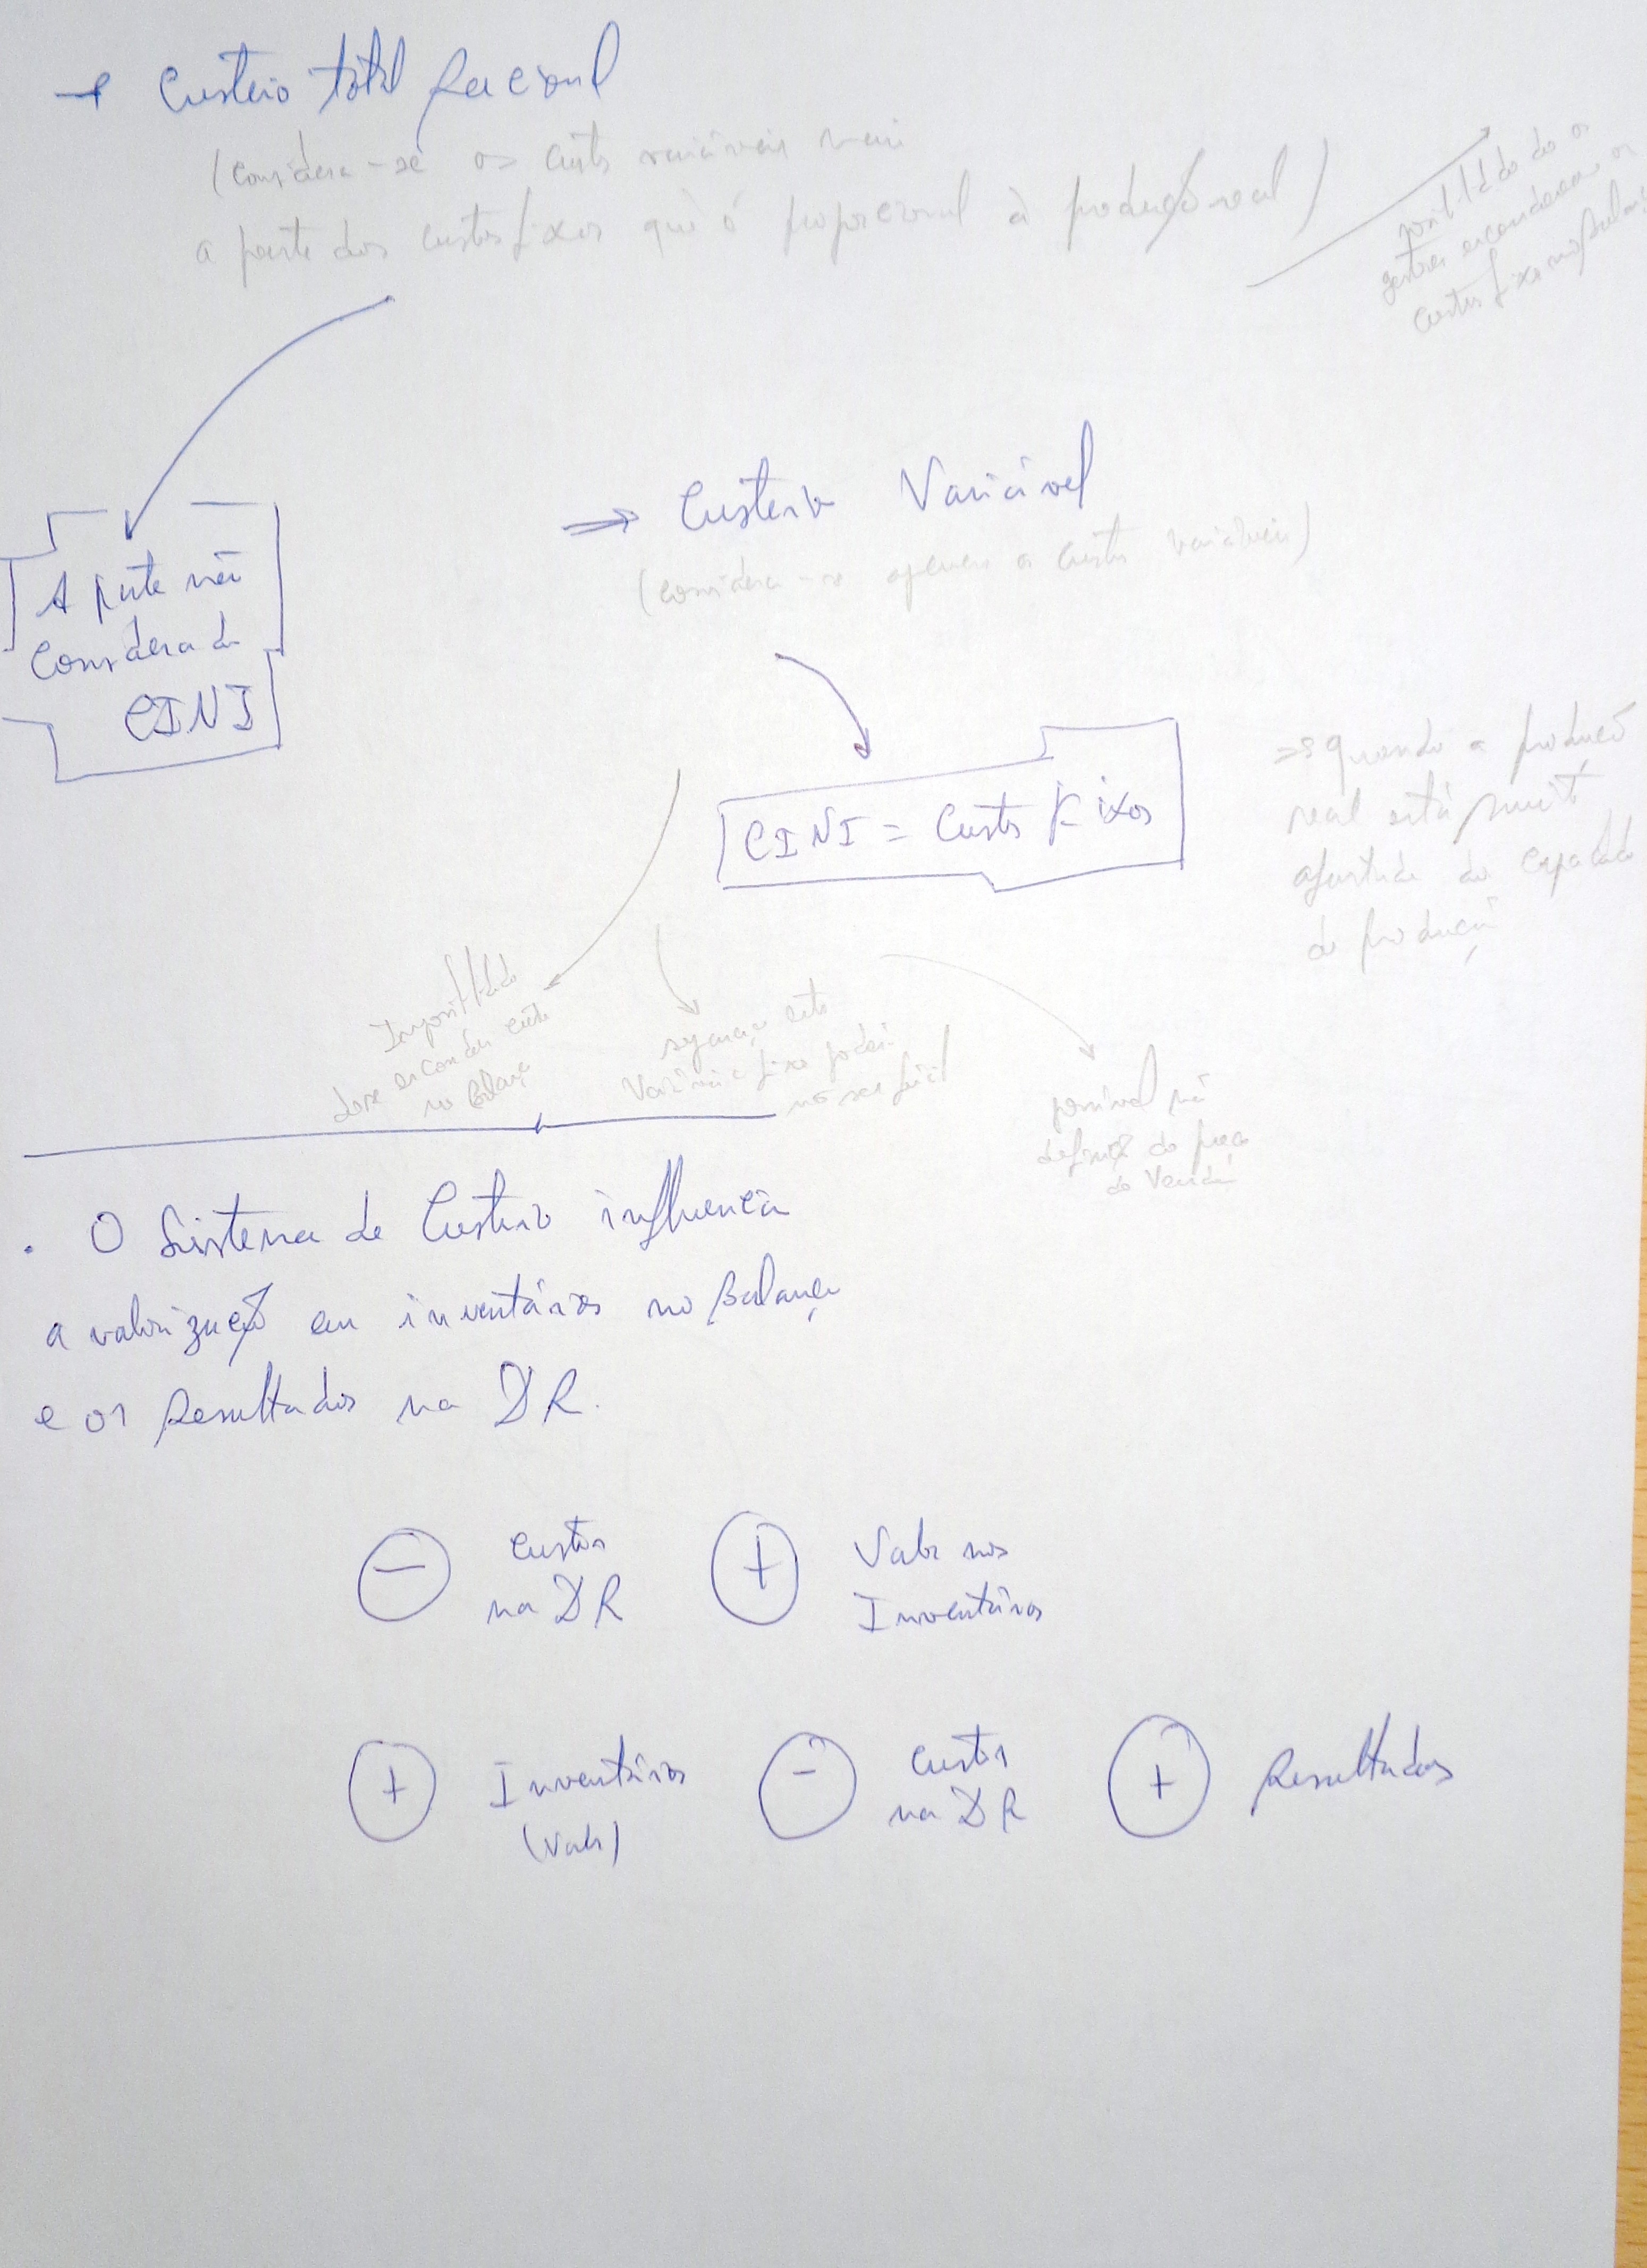 → Custeio total Racional
(considera-se os custos variáveis mais
a parte dos custos fixos que é proporcional à produção real)
possibilidade de os
gestores esconderem os
custos fixos no Balanço
A parte não
considerada
CINI
⇒ Custeio Variável
(considera-se apenas os custos variáveis)
CINI = Custos Fixos
⇒ quando a produção
real está muito
afastada da capacidade
de produção
Impossibilidade
de se esconder custos
no Balanço
separação entre
Variável e fixo poderá
não ser fácil
possível má
definição do preço
de Venda
. O Sistema de Custeio influencia
a valorização em inventários no Balanço
e os Resultados na DR.
- Custos
na DR
+ Valor nos
Inventários
+ Inventários
(Valor)
- Custos
na DR
+ Resultados